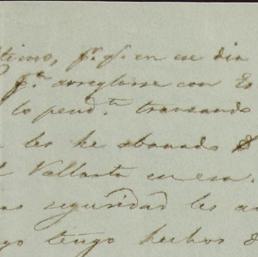 timo, pr. qe. en ese dia
pa. arreglarse con Es
lo pendte. transando
les he abonado $
Vallarta en esa.
seguridad les
tengo hechos